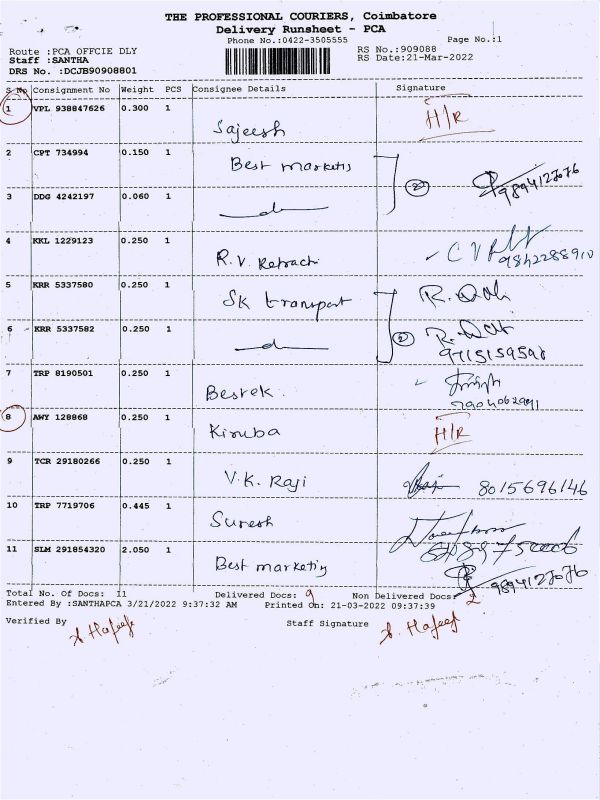 THE PROFESSIONAL COURIERS, Coimbatore
Delivery Runsheet - PCA
Phone No.:0422-3505555 Page No.:1
Route :PCA OFFCIE DLY RS No.:909088
Staff :SANTHA RS Date:21-Mar-2022
DRS No. :DCJB90908801
S No Consignment No Weight PCS Consignee Details Signature
1 VPL 938847626 0.300 1 Sajeesh H/R
2 CPT 734994 0.150 1 Best marketig 2 9894127076
3 DDG 4242197 0.060 1
4 KKL 1229123 0.250 1 R.V. 9842288910
5 KRR 5337580 0.250 1 SK transport
6 KRR 5337582 0.250 1 2 9715159598
7 TRP 8190501 0.250 1 Bestek
8 AWY 128868 0.250 1 Kiruba H/R
9 TCR 29180266 0.250 1 V.K. Raji 8015696146
10 TRP 7719706 0.445 1 Suresh
11 SLM 291854320 2.050 1 Best marketig 9894127076
Total No. Of Docs: 11 Delivered Docs: 9 Non Delivered Docs: 2
Entered By :SANTHAPCA 3/21/2022 9:37:32 AM Printed On: 21-03-2022 09:37:39
Verified By Staff Signature
S. Hafeef S. Hafeef